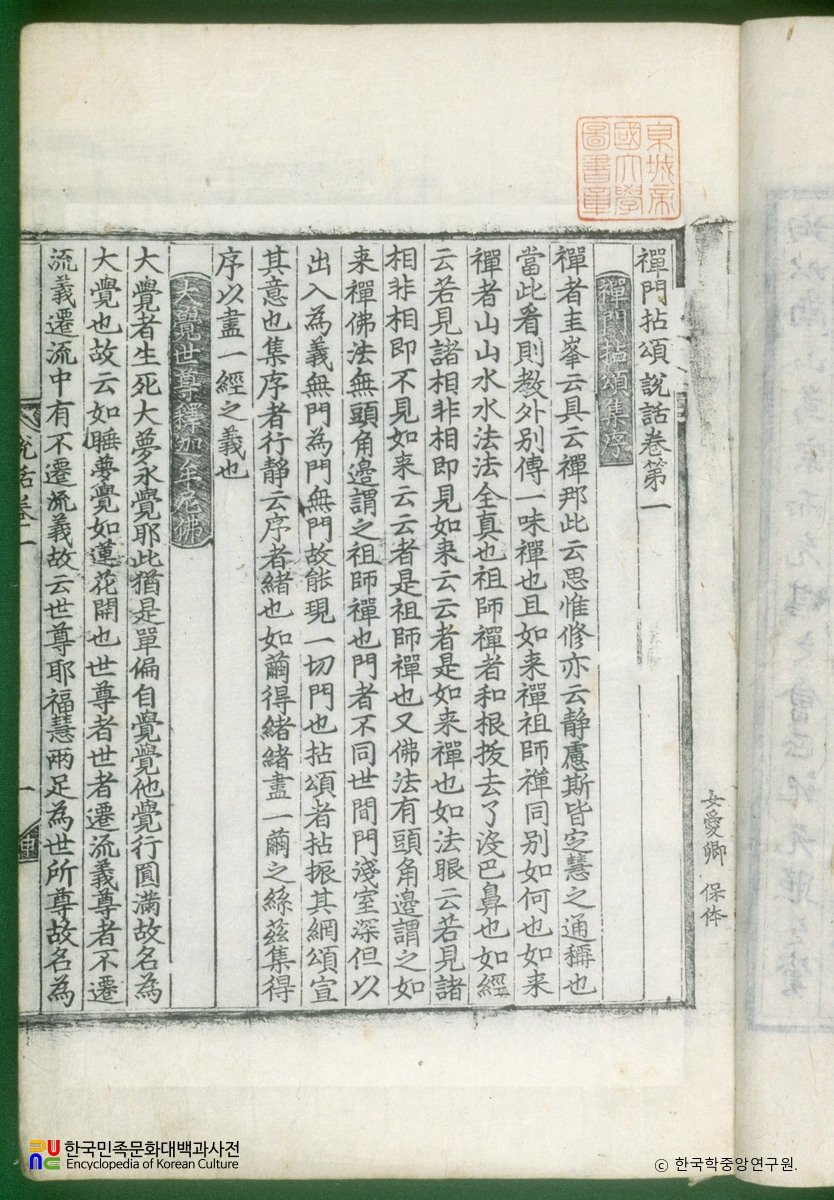 禪門拈頌說話卷第一
禪門拈頌集序
禪者圭峯云具云禪那此云思惟修亦云静慮斯皆定慧之通稱也
當此看則教外别傳一味禪也且如来禪祖師禪同别如何也如来
禪者山山水水法法全真也祖師禪者和根拨去了沒巴鼻也如經
云若見諸相非相即見如来云云者是如来禪也如法眼云若見諸
相非相即不見如来云云者是祖師禪也又佛法有頭角邊謂之如
来禪佛法無頭角邊謂之祖師禪也門者不同世間門淺室深但以
出入為義無門為門無門故能現一切門也拈頌者拈振其綱頌宣
其意也集序者行靜云序者緒也如繭得緒緒盡一繭之絲茲集得
序以盡一經之義也
大覺世尊釋迦牟尼佛
大覺者生死大夢永覺耶此猶是單偏自覺覺他覺行圓满故名為
大覺也故云如睡夢覺如蓮花開也世尊者世者遷流義尊者不遷
流義遷流中有不遷流義故云世尊耶福慧兩足為世所尊故名為
說話卷一
一
京城帝
國大學
圖書章
女愛卿 保体
한국민족문화대백과사전
Encyclopedia of Korean Culture
ⓒ 한국학중앙연구원.